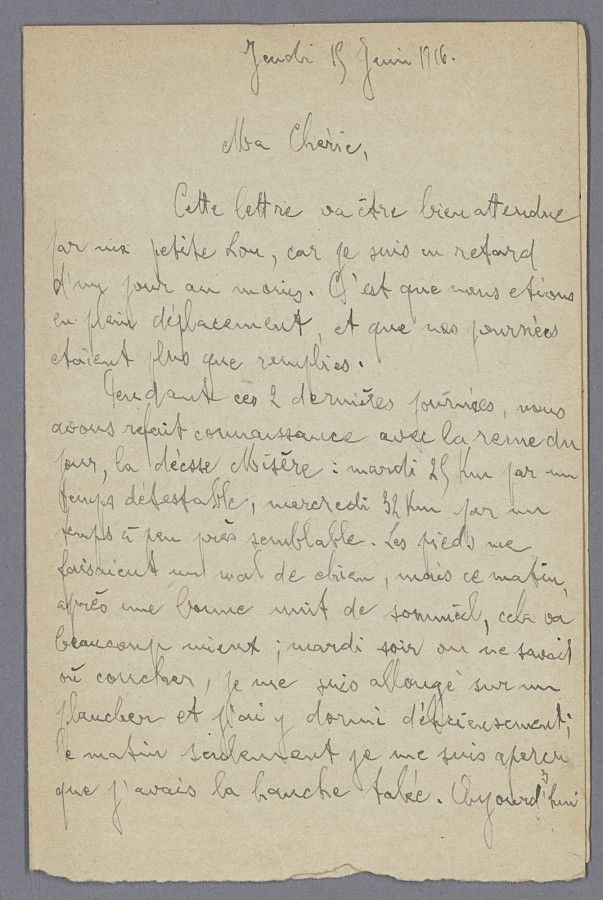 Jeudi 15 Juin 1916.
Ma Chérie,
Cette lettre va être bien attendue
par ma petite Lou, car je suis en retard
d'un jour au moins. C'est que nous etions
en plein déplacement, et que nos journées
etaient plus que remplies.
Pendant ces 2 dernières journées, nous
avons refait connaissance avec la reine du
jour, la déesse Misère : mardi 25 Km par un
temps détestable, mercredi 32 Km par un
temps à peu près semblable. Les pieds me
faisaient un mal de chien, mais ce matin,
après une bonne nuit de sommeil, cela va
beaucoup mieux ; mardi soir on ne savait
où coucher, je me suis allongé sur un
plancher et j'ai y dormi délicieusement ;
le matin seulement je me suis aperçu
que j'avais la hanche talée. Aujourd'hui